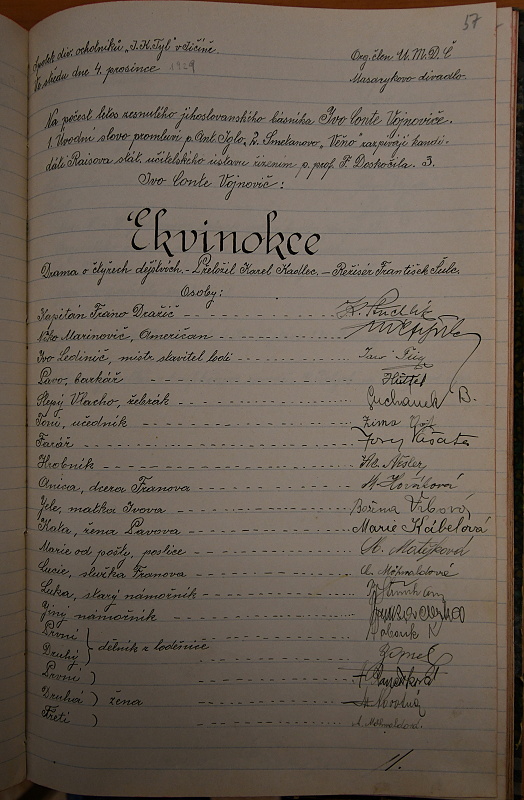 57
Spolek div. ochotníků „J. K. Tyl" v Jičíně.
Ve středu dne 4. prosince 1929
Org. člen Ú. M. D. Č.
Masarykovo divadlo.
Na počest letos zesnulého jihoslovanského básníka Ivo Conte Vojnoviče.
1. Úvodní slovo promluví p. Ant. Iglo, 2. Smetanovo „Věno" razpívají kandi-
dáti Raisova stát. učitelského ústavu řízením p. prof. F. Doskočila. 3.
Ivo Conte Vojnovič:
Ekvinokce
Drama o čtyřech dějstvích. - Přeložil Karel Kadlec. - Režisér František Šulc.
Osoby:
Kapitán Frano Dražič K. Kudlík
Niko Marinovič, Američan
Ivo Ledinič, mistr stavitel lodí
Pavo, barkář
Slepý Vlacho, žebrák Suchánek B.
Toni, učedník Zima
Farář
Hrobník
Anica, dcera Franova M. Horáková
Jele, matka Ivova Božena Vrbová
Kata, žena Pavova Marie Kábelová
Marie od pošty, poslice M. Matějková
Lucie, služka Franova A. Möhwaldová
Luka, starý námořník
Jiný námořník
První
Druhý } dělník z loděnice
První
Druhá } žena
Třetí A. Möhwaldová